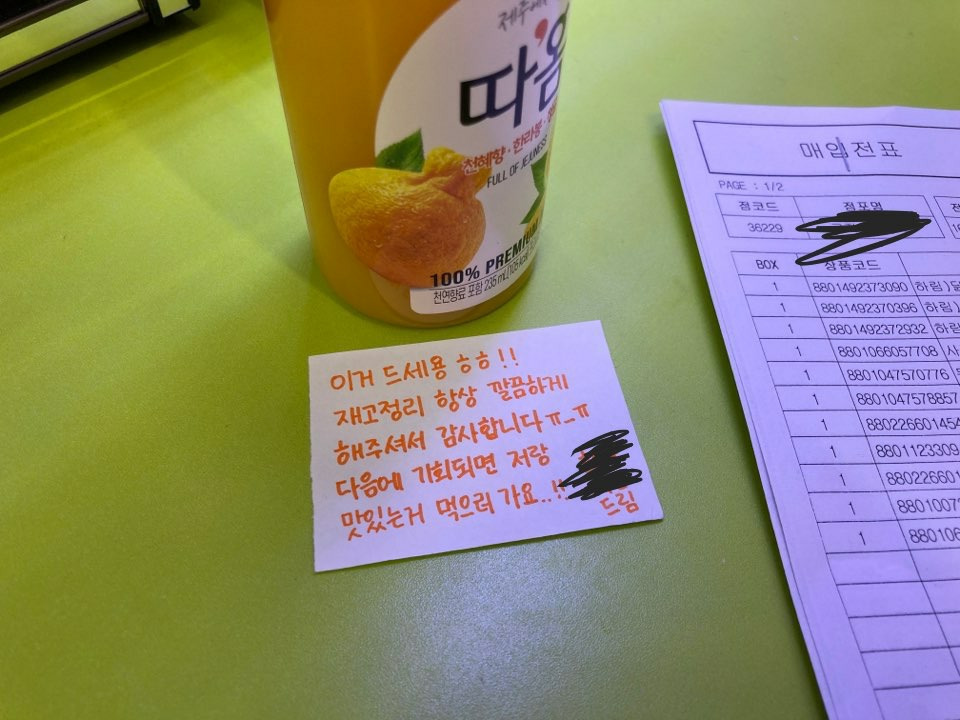 제주에
따옴
천혜향·한라봉·
FULL OF JEJUNESS
100% PREMIUM
천연향료 포함 235 mL(105 kcal
이거 드세용 ㅎㅎ!!
재고정리 항상 깔끔하게
해주셔서 감사합니다ㅠ_ㅠ
다음에 기회되면 저랑
맛있는거 먹으러 가요..!!
드림
매입전표
PAGE : 1/2
점코드 점포명
36229
BOX 상품코드
1 8801492373090 하림)닭
1 8801492370396 하림)
1 8801492372932 하림
1 8801066057708 사
1 8801047570776
1 8801047578857
1 880226601454
1 8801123309
1 880226601
1 8801007
1 880106